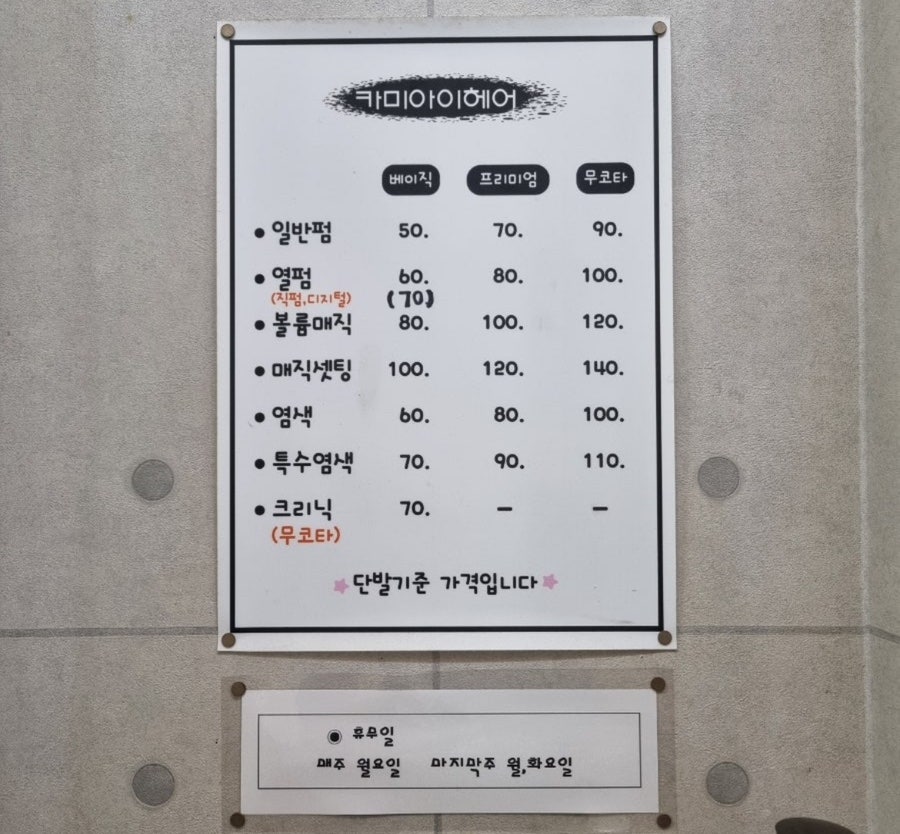 카미아이헤어
베이직 프리미엄 무코타
• 일반펌 50. 70. 90.
• 열펌 60. 80. 100.
(직펌,디지털) (70)
• 볼륨매직 80. 100. 120.
• 매직셋팅 100. 120. 140.
• 염색 60. 80. 100.
• 특수염색 70. 90. 110.
• 크리닉 70. - -
(무코타)
★단발기준 가격입니다★
◉ 휴무일
매주 월요일 마지막주 월,화요일